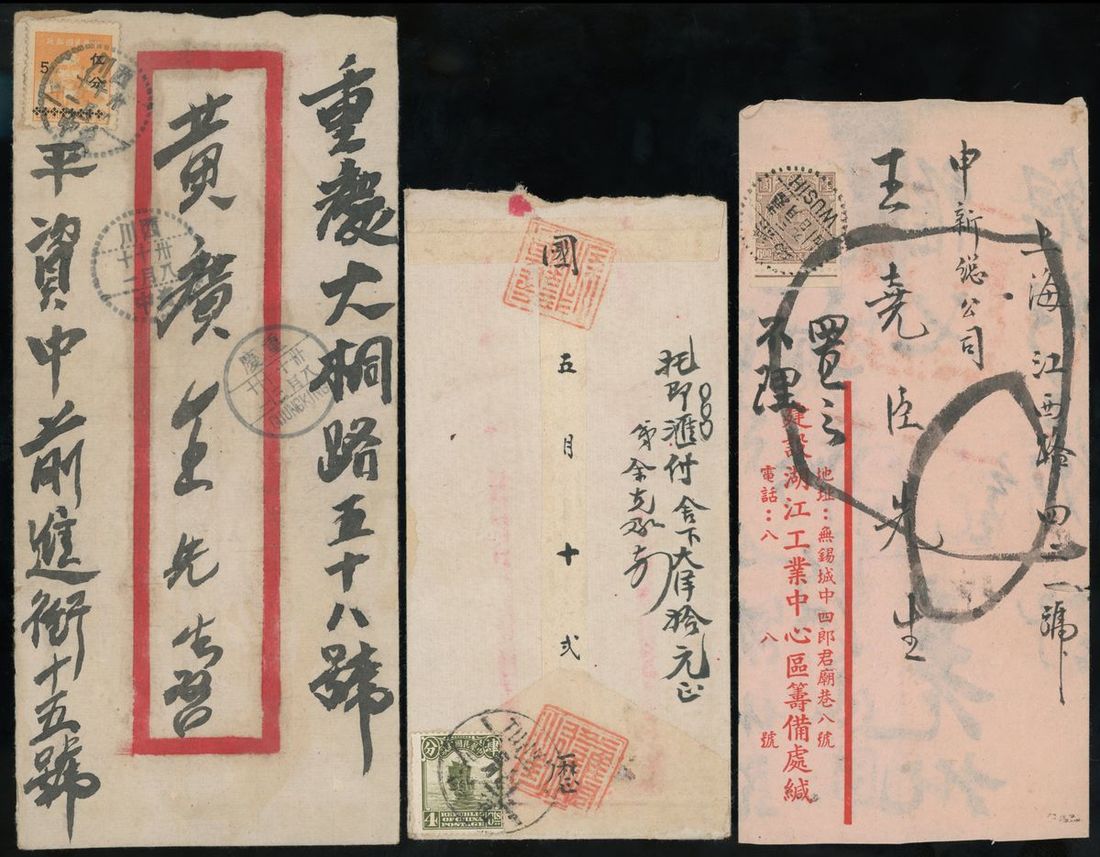 重慶大桐路五十八號
黃廣全先生啓
平資中前進街十五號
伍分
5
西川
卅八年
十一月
十二
中
重慶
卅八年
十一月
CHUNGKING
國
五月十式
曆
托即滙付舍下大洋拾元正
弟余克承寄
分
4
REPUBLIC
OF CHINA
POSTAGE
CTS
上海江西路四二一號
申新總公司
王堯臣先生
置之
不理
WUSIH
地址：無錫城中四郎君廟巷八號
建設湖江工業中心區籌備處緘
電話：八八號